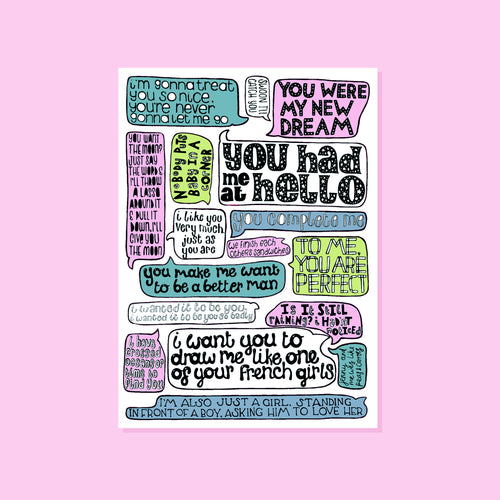 i'm gonna treat
you so nice,
you're never
gonna let me go
SWOON I'LL
CATCH YOU
YOU WERE
MY NEW
DREAM
YOU WANT
THE MOON?
JUST SAY
THE WORD &
I'LL THROW
A LASSO
AROUND IT
& PULL IT
DOWN. I'LL
GIVE YOU
THE MOON
NOBODY PUTS
BABY IN A
CORNER
you had
me at hello
i like you
very much
just as
you are
you complete me
we finish each
others sandwiches
TO ME,
YOU ARE
PERFECT
you make me want
to be a better man
i wanted it to be you,
i wanted it to be you so badly
IS IT STILL
RAINING? i HADN'T
NOTICED
i have
crossed
oceans of
time to
find you
i want you to
draw me like one
of your french girls
jenny and
me was like
peas & carrots
I'M ALSO JUST A GIRL, STANDING
IN FRONT OF A BOY, ASKING HIM TO LOVE HER